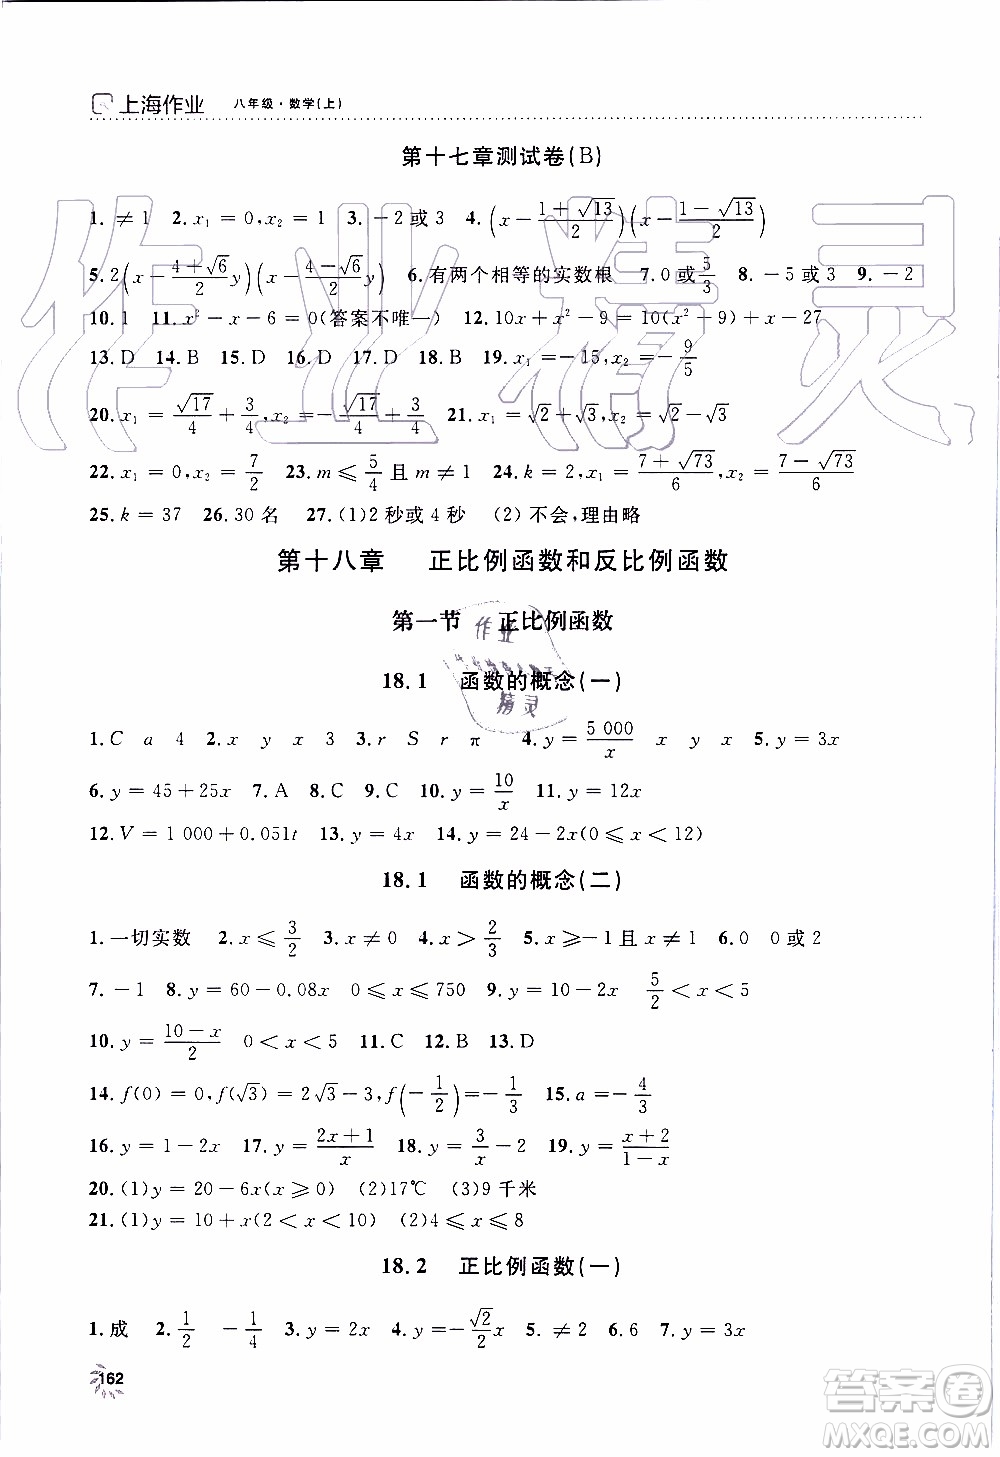 上海作业 八年级·数学(上)
第十七章测试卷(B)
1. ≠1 2. x₁ = 0, x₂ = 1 3. -2或3 4. (x - (1+√13)/2)(x - (1-√13)/2)
5. 2(x - (4+√6)/2 y)(x - (4-√6)/2 y) 6. 有两个相等的实数根 7. 0或5/3 8. -5或3 9. -2
10. 1 11. x² - x - 6 = 0(答案不唯一) 12. 10x + x² - 9 = 10(x² - 9) + x - 27
13. D 14. B 15. D 16. D 17. D 18. B 19. x₁ = -15, x₂ = -9/5
20. x₁ = √17/4 + 3/4, x₂ = -√17/4 + 3/4 21. x₁ = √2 + √3, x₂ = √2 - √3
22. x₁ = 0, x₂ = 7/2 23. m ⩽ 5/4 且 m ≠ 1 24. k = 2, x₁ = (7+√73)/6, x₂ = (7-√73)/6
25. k = 37 26. 30 名 27. (1)2 秒或 4 秒 (2) 不会,理由略
第十八章 正比例函数和反比例函数
第一节 正比例函数
18.1 函数的概念(一)
1. C a 4 2. x y x 3 3. r S r π 4. y = 5 000/x x y x 5. y = 3x
6. y = 45 + 25x 7. A 8. C 9. C 10. y = 10/x 11. y = 12x
12. V = 1 000 + 0.051t 13. y = 4x 14. y = 24 - 2x(0 ⩽ x < 12)
18.1 函数的概念(二)
1. 一切实数 2. x ⩽ 3/2 3. x ≠ 0 4. x > 2/3 5. x ⩾ -1 且 x ≠ 1 6. 0 0 或 2
7. -1 8. y = 60 - 0.08x 0 ⩽ x ⩽ 750 9. y = 10 - 2x 5/2 < x < 5
10. y = (10-x)/2 0 < x < 5 11. C 12. B 13. D
14. f(0) = 0, f(√3) = 2√3 - 3, f(-1/2) = -1/3 15. a = -4/3
16. y = 1 - 2x 17. y = (2x+1)/x 18. y = 3/x 19. y = (x+2)/(1-x)
20. (1)y = 20 - 6x(x ⩾ 0) (2)17℃ (3)9 千米
21. (1)y = 10 + x(2 < x < 10) (2)4 ⩽ x ⩽ 8
18.2 正比例函数(一)
1. 成 2. 1/2 -1/4 3. y = 2x 4. y = -√2/2 x 5. ≠ 2 6. 6 7. y = 3x
162
作业精灵
作业
精灵
答案圈
MXQE.COM